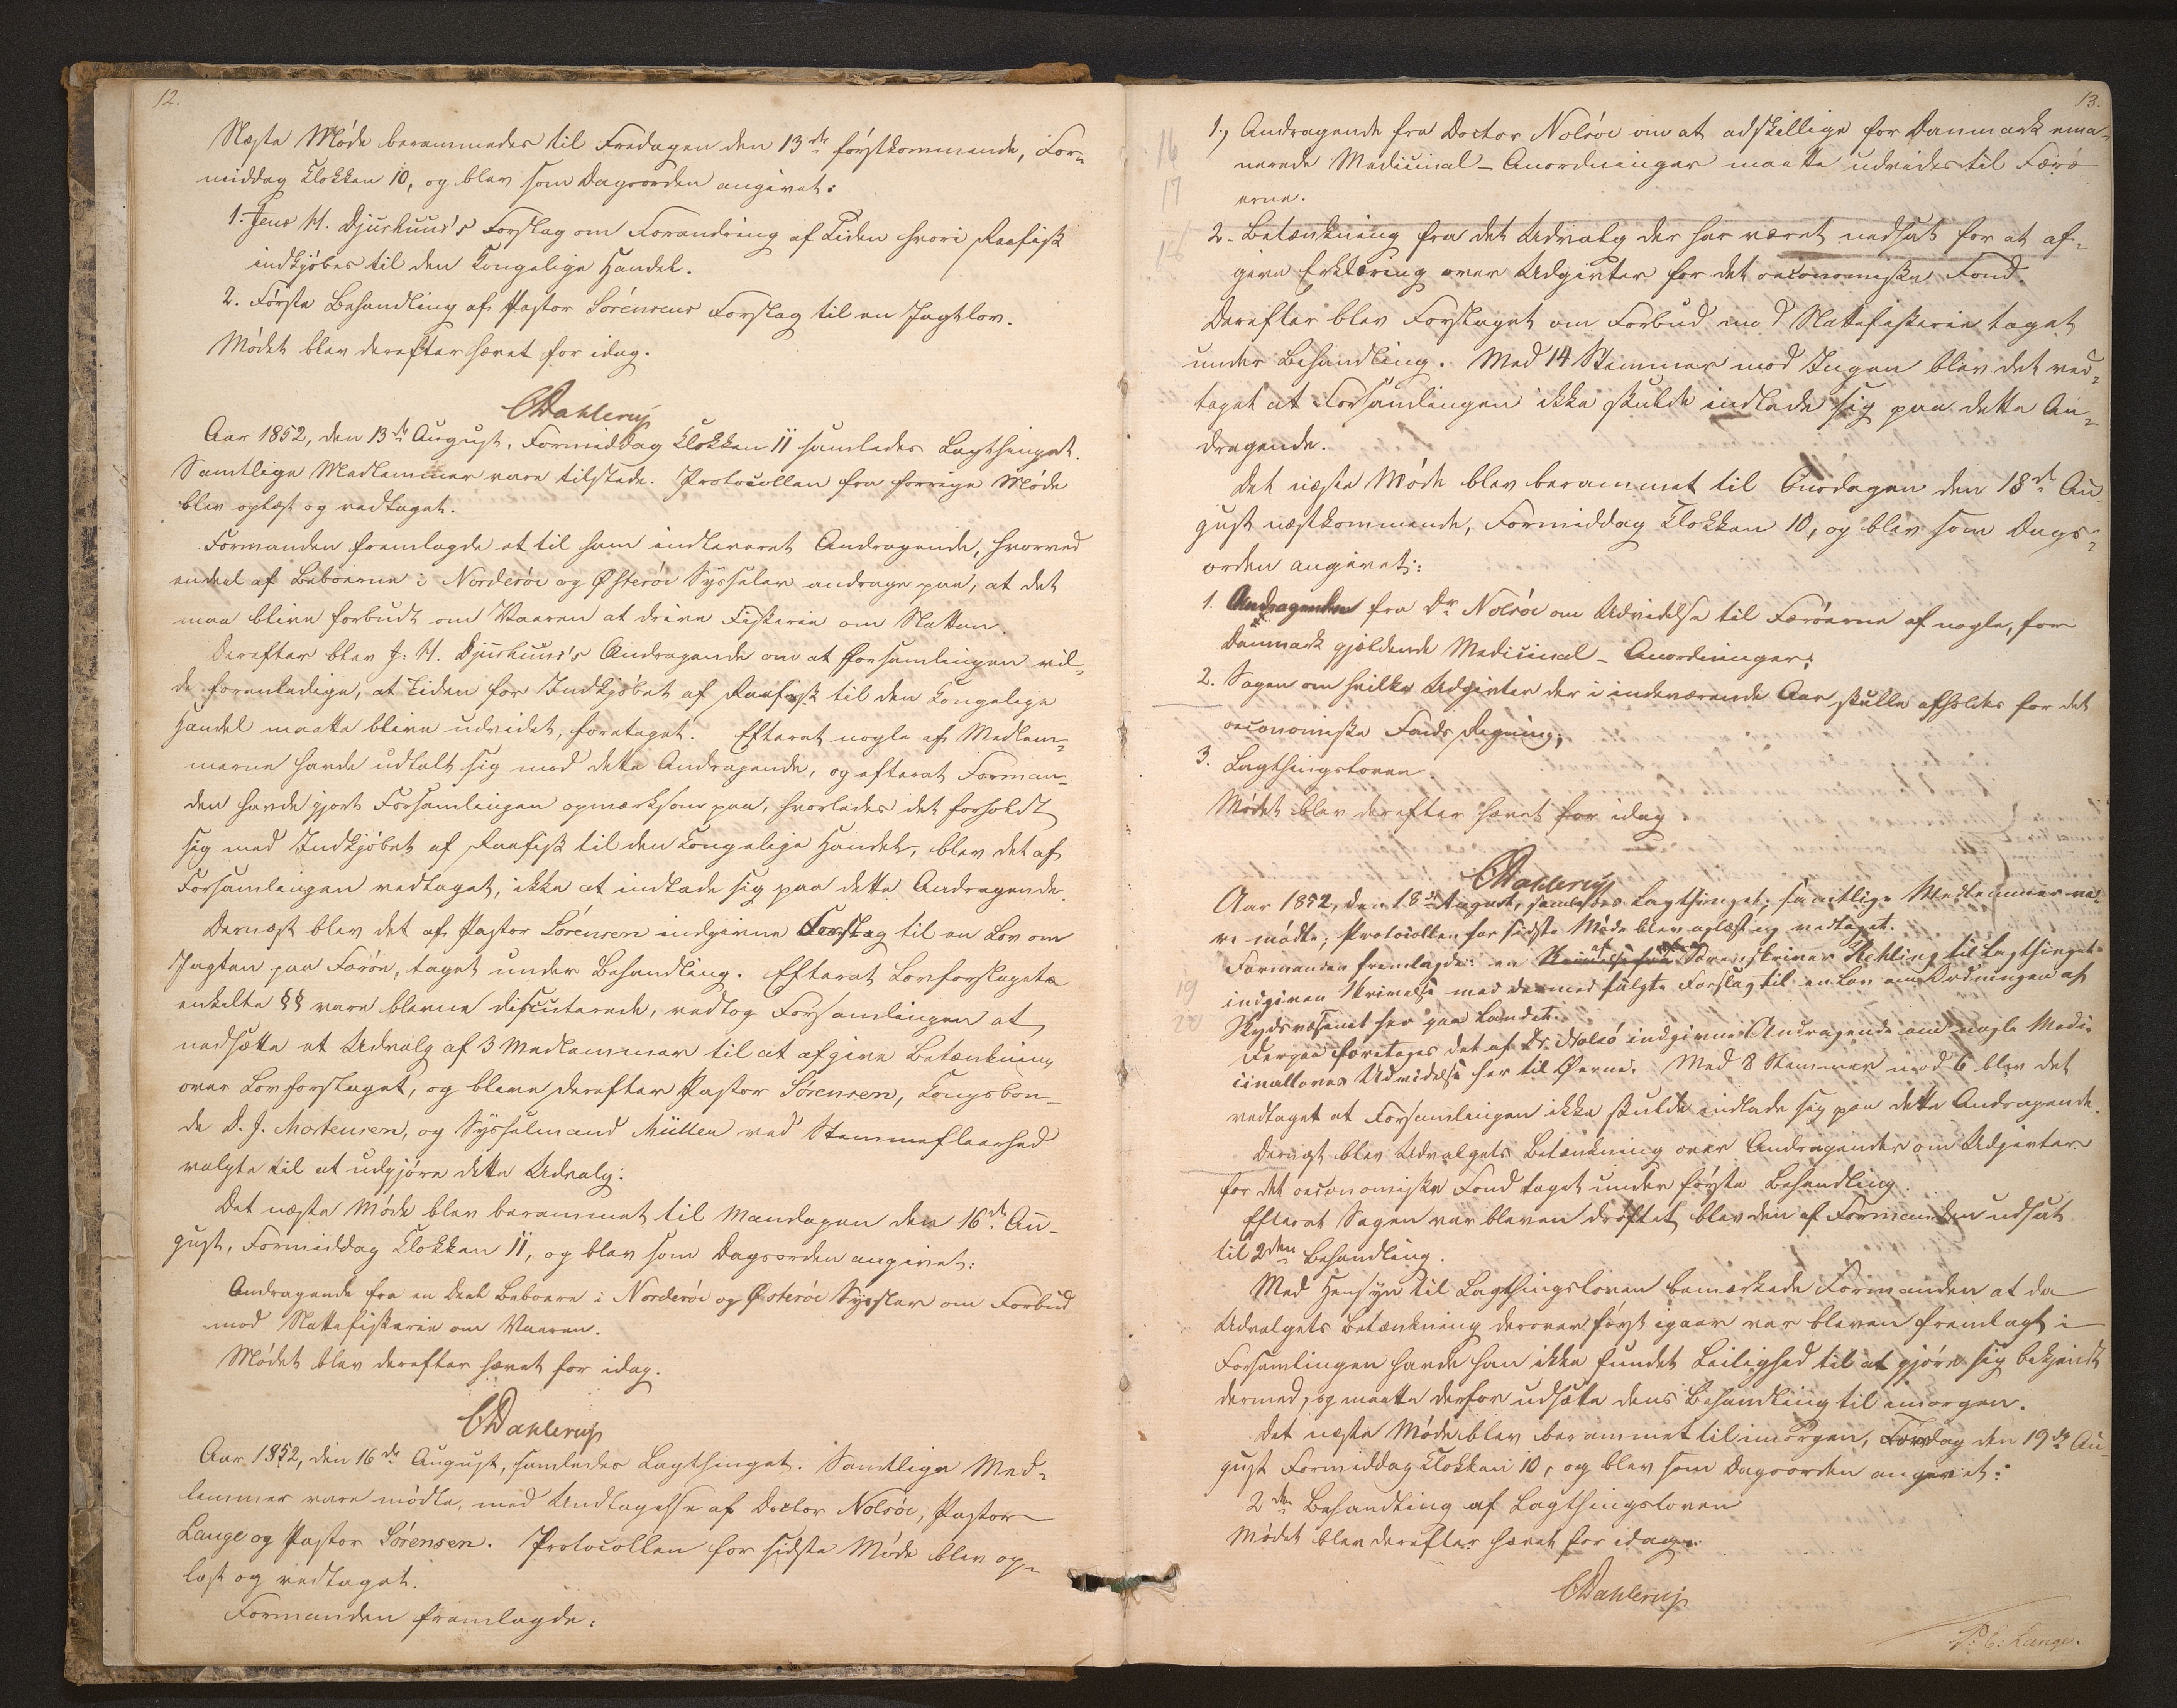 12.
Næste Møde berammedes til Fredagen den 13de førstkommende, For-
middag Klokken 10, og blev som Dagsorden angivet:
1. Jens H. Djurhuus's Forslag om Forandring af Tiden hvori Raafisk
indkjøbes til den Kongelige Handel.
2. Første Behandling af Pastor Sørensens Forslag til en Jagtlov.
Mødet blev derefter hævet for idag.
CDahlerup
Aar 1852, den 13de August, Formiddag Klokken 11 samledes Lagthinget.
Samtlige Medlemmer vare tilstede. Protocollen fra forrige Møde
blev oplæst og vedtaget.
Formanden fremlagde et til ham indleveret Andragende, hvorved
endeel af Beboerne i Norderøe og Østerøe Sysseler andrage paa, at det
maa blive forbudt om Vaaren at drive Fiskerie om Natten.
Derefter blev J. H. Djurhuus's Andragende om at Forsamlingen vil-
de foranledige, at Tiden for Indkjøbet af Raafisk til den Kongelige
Handel maatte blive udvidet, foretaget. Efterat nogle af Medlem-
merne havde udtalt sig mod dette Andragende, og efterat Forman-
den havde gjort Forsamlingen opmærksom paa, hvorledes det forholdt
sig med Indkjøbet af Raafisk til den Kongelige Handel, blev det af
Forsamlingen vedtaget, ikke at indlade sig paa dette Andragende.
Dernæst blev det af Pastor Sørensen indgivne Forslag til en Lov om
Jagten paa Færøe, taget under Behandling. Efterat Lovforslagets
enkelte §§ vare blevne discuterede, vedtog Forsamlingen at
nedsætte et Udvalg af 3 Medlemmer til at afgive Betænkning
over Lovforslaget, og bleve derefter Pastor Sørensen, Kongsbon-
de D. J. Mortensen, og Sysselmand Müller ved Stemmefleerhed
valgte til at udgjøre dette Udvalg.
Det næste Møde blev berammet til Mandagen den 16de Au-
gust, Formiddag Klokken 11, og blev som Dagsorden angivet:
Andragende fra en Deel Beboere i Norderøe og Østerøe Sysseler om Forbud
mod Nattefiskerie om Vaaren.
Mødet blev derefter hævet for idag.
CDahlerup
Aar 1852, den 16de August, samledes Lagthinget. Samtlige Med-
lemmer vare mødte, med Undtagelse af Doctor Nolsøe, Pastor
Lange og Pastor Sørensen. Protocollen for sidste Møde blev op-
læst og vedtaget.
Formanden fremlagde:
13.
16
17
18
1., Andragende fra Doctor Nolsøe om at adskillige for Danmark ema-
nerede Medicinal-Anordninger maatte udvides til Færø
erne.
2. Betænkning fra det Udvalg der har været nedsat for at af-
give Erklæring over Udgivter for det oeconomiske Fond.
Derefter blev Forslaget om Forbud mod Nattefiskerie taget
under Behandling. Med 14 Stemmer mod Ingen blev det ved-
taget at Forsamlingen ikke skulde indlade sig paa dette An-
dragende.
Det næste Møde blev berammet til Onsdagen den 18de Au-
gust næstkommende, Formiddag Klokken 10, og blev som Dags-
orden angivet:
1. Andragenden fra Dr Nolsøe om Udvidelse til Færøerne af nogle, for
Danmark gjældende Medicinal-Anordninger;
2. Sagen om hvilke Udgivter der i indeværende Aar skulle afholdes for det
oeconomiske Fonds Regning;
3. Lagthingsloven.
Mødet blev derefter hævet for idag.
CDahlerup
Aar 1852, den 18de August, samledes Lagthinget; samtlige Medlemmer va-
re mødte; Protocollen for sidste Møde blev oplæst og vedtaget.
Formanden fremlagde: en af Sorenskriver Kehling til Lagthinget
19
20
indgiven Skrivelse med dermed fulgte Forslag til en Lov om Ordningen af
Skydsvæsenet her paa Landet.
Derpaa foretoges det af Dr. Nolsø indgivne Andragende om nogle Medi-
cinalloves Udvidelse her til Øerne. Med 8 Stemmer mod 6 blev det
vedtaget at Forsamlingen ikke skulde indlade sig paa dette Andragende.
Dernæst blev Udvalgets Betænkning over Andragender om Udgivter
for det oeconomiske Fond taget under første Behandling.
Efterat Sagen var bleven drøftet blev den af Formanden udsat
til 2den Behandling.
Med Hensyn til Lagthingsloven bemærkede Formanden at da
Udvalgets Betænkning derover først igaar var bleven fremlagt i
Forsamlingen havde han ikke fundet Leilighed til at gjøre sig bekjendt
dermed, og maatte derfor udsætte dens Behandling til imorgen.
Det næste Møde blev berammet til imorgen, Torsdag den 19de Au-
gust Formiddag Klokken 10, og blev som Dagsorden angivet:
2den Behandling af Lagthingsloven
Mødet blev derefter hævet for idag.
CDahlerup
P: E: Lange.